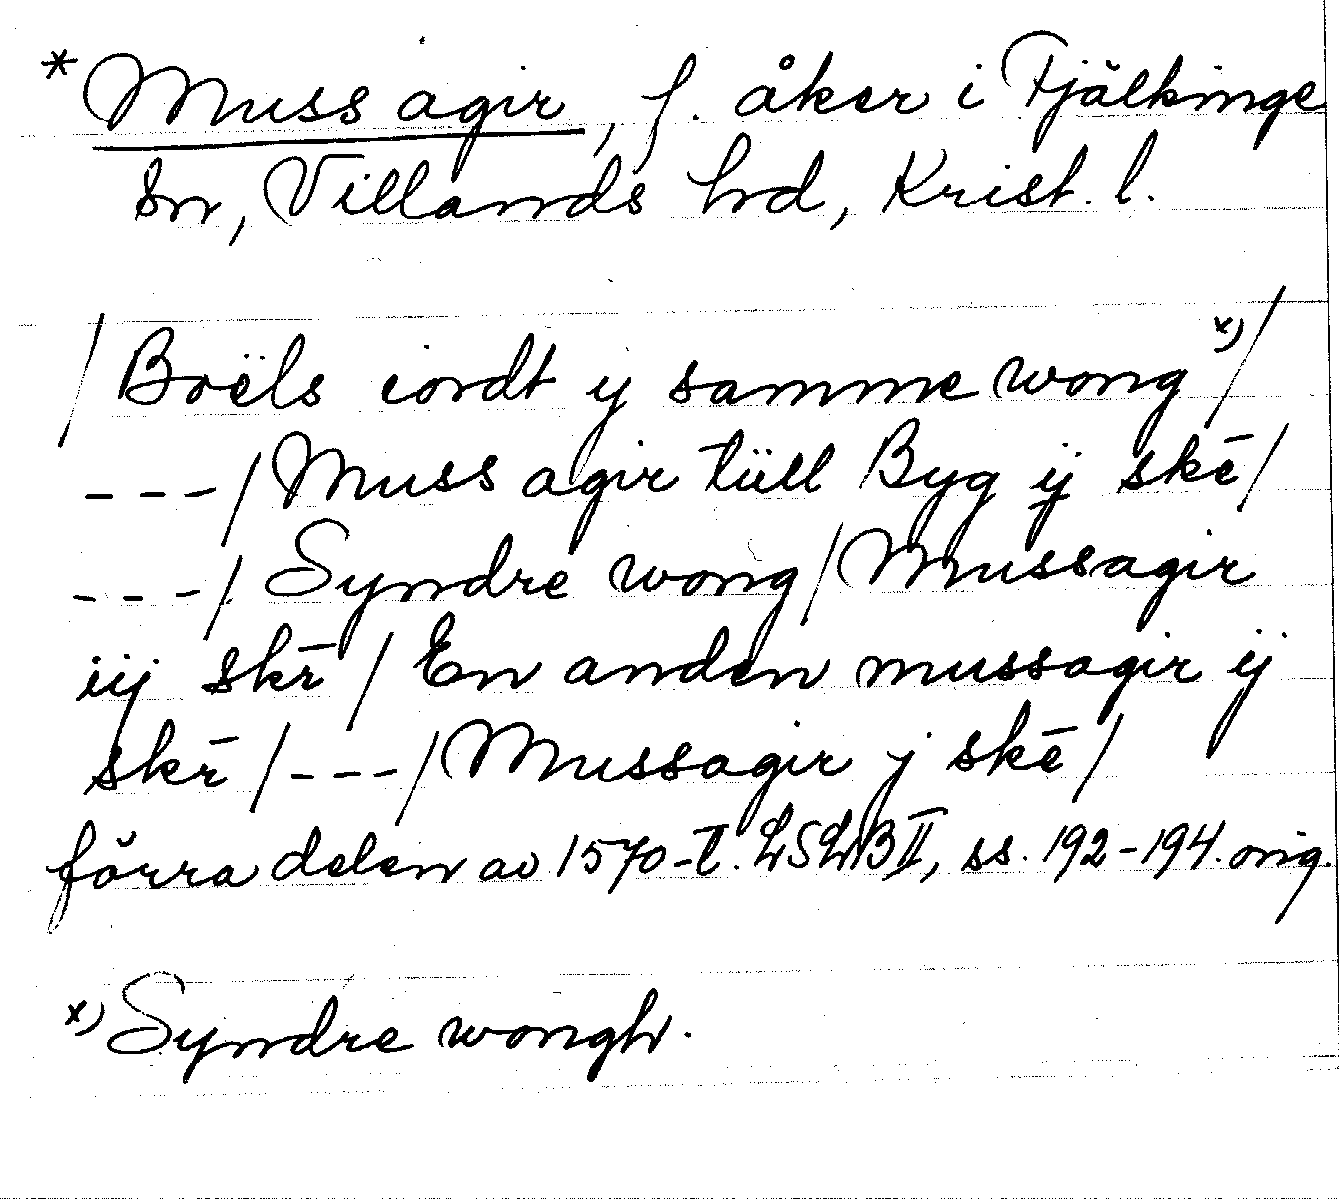 * Muss agir, f. åker i Fjälkinge
sn, Villands hd, Krist. l.
/ Boëls iordt ij samme wong x) /
- - - / Muss agir tüll Byg ij skē /
- - - / Syndre wong / Mussagir
iij skr̄ / En anden mussagir ij
skr̄ / - - - / Mussagir j skē /
förra delen av 1570-t. LSLB II, ss. 192-194. orig.
x) Syndre wongh.